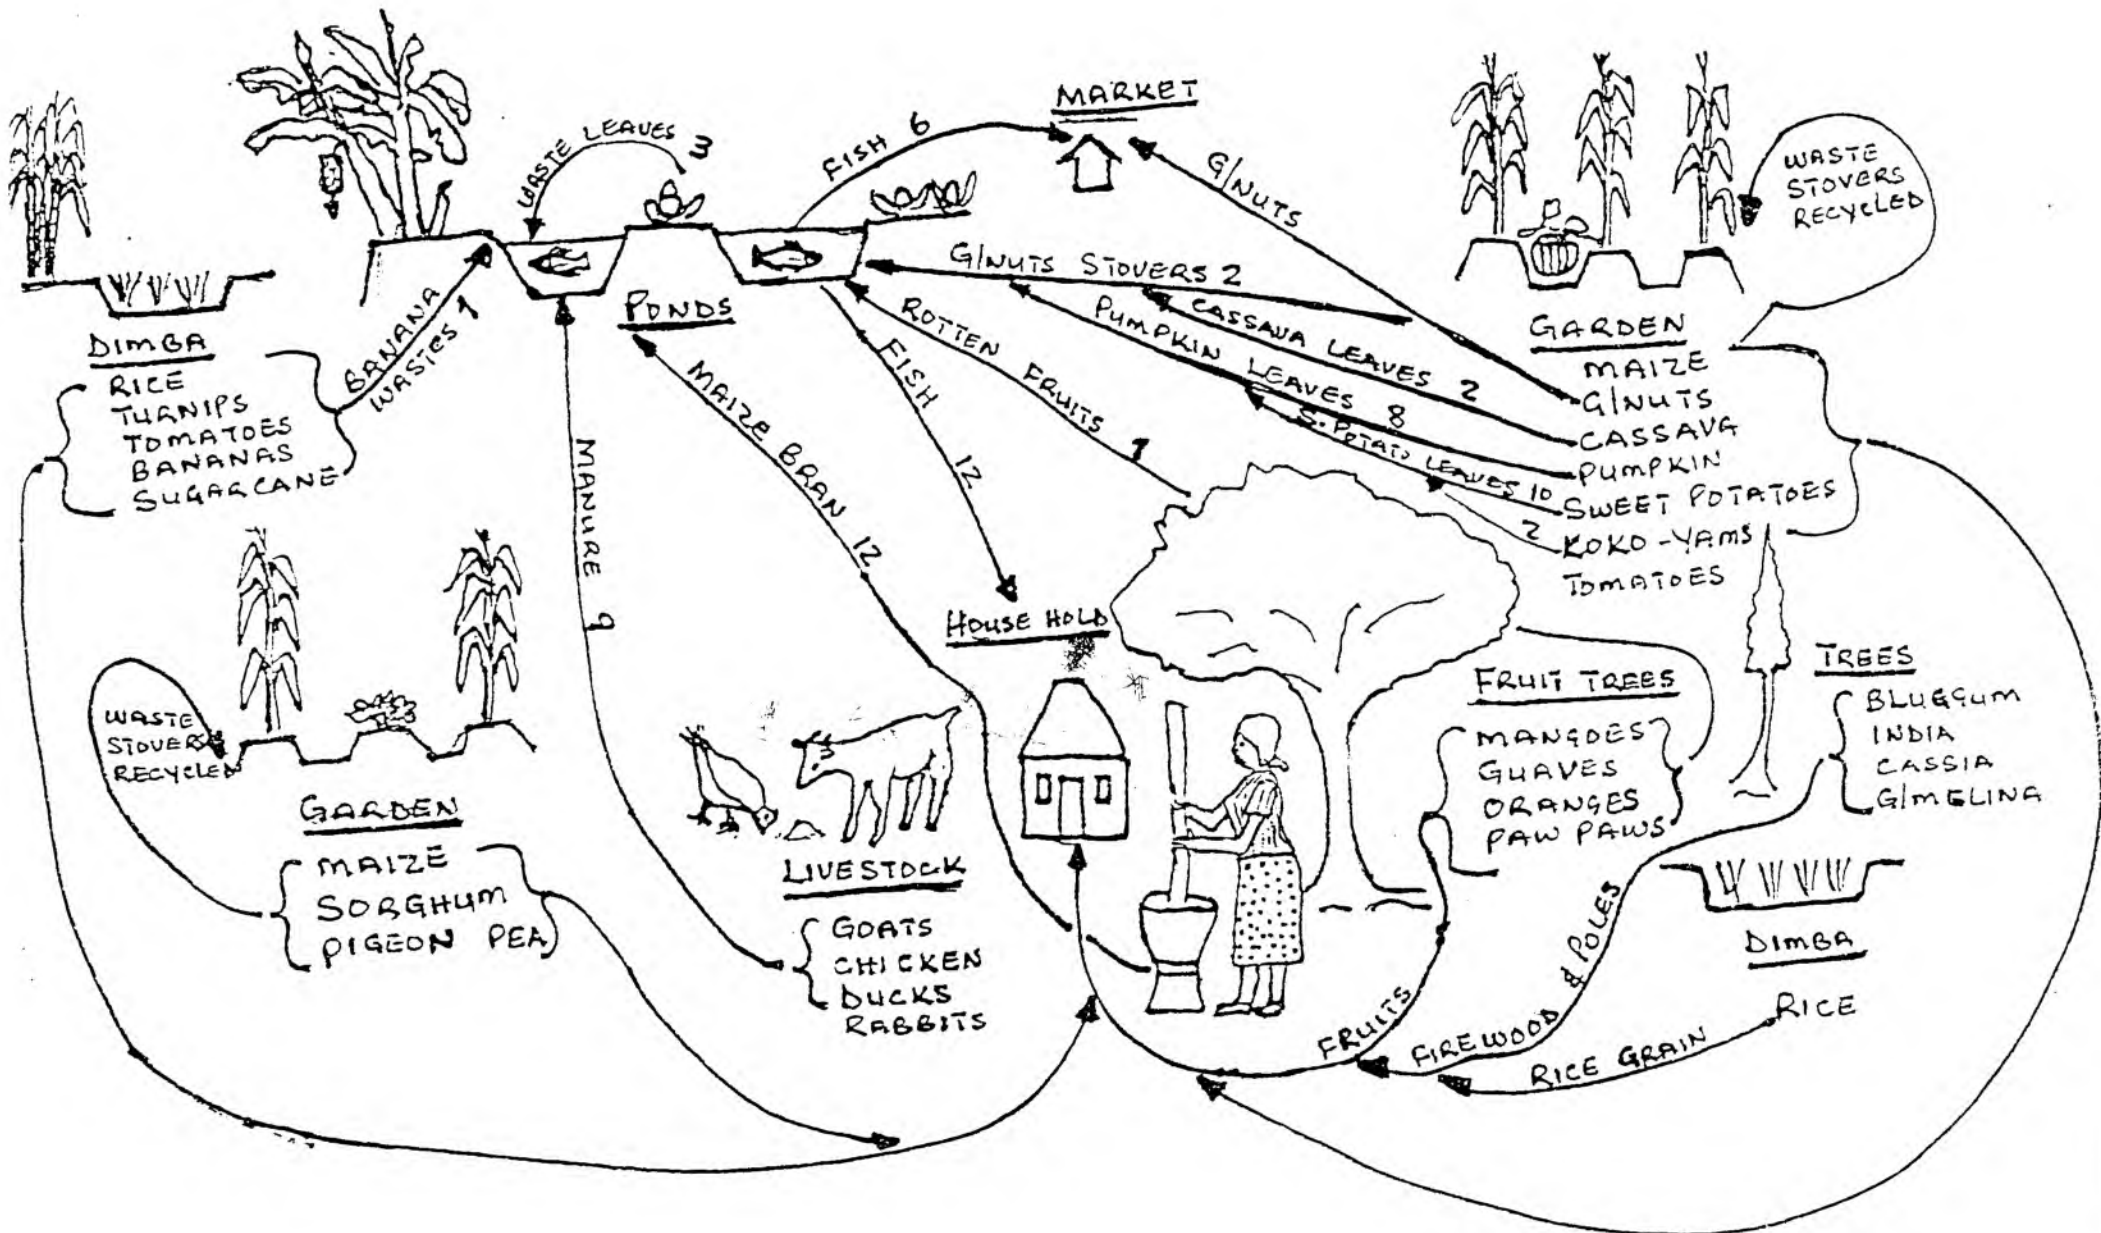 MARKET
WASTE LEAVES 3
FISH 6
G/NUTS
WASTE
STOVERS
RECYCLED
G/NUTS STOVERS 2
CASSAVA LEAVES 2
PUMPKIN LEAVES 8
S. POTATO LEAVES 10
2
ROTTEN FRUITS 7
PONDS
BANANA
WASTES 1
FISH 12
MAIZE BRAN 12
MANURE 9
DIMBA
RICE
TURNIPS
TOMATOES
BANANAS
SUGARCANE
GARDEN
MAIZE
G/NUTS
CASSAVA
PUMPKIN
SWEET POTATOES
KOKO-YAMS
TOMATOES
HOUSE HOLD
WASTE
STOVERS
RECYCLED
GARDEN
MAIZE
SORGHUM
PIGEON PEA
LIVESTOCK
GOATS
CHICKEN
DUCKS
RABBITS
FRUIT TREES
MANGOES
GUAVES
ORANGES
PAW PAWS
TREES
BLUGGUM
INDIA
CASSIA
G/MELINA
DIMBA
RICE
FRUITS
FIREWOOD & POLES
RICE GRAIN